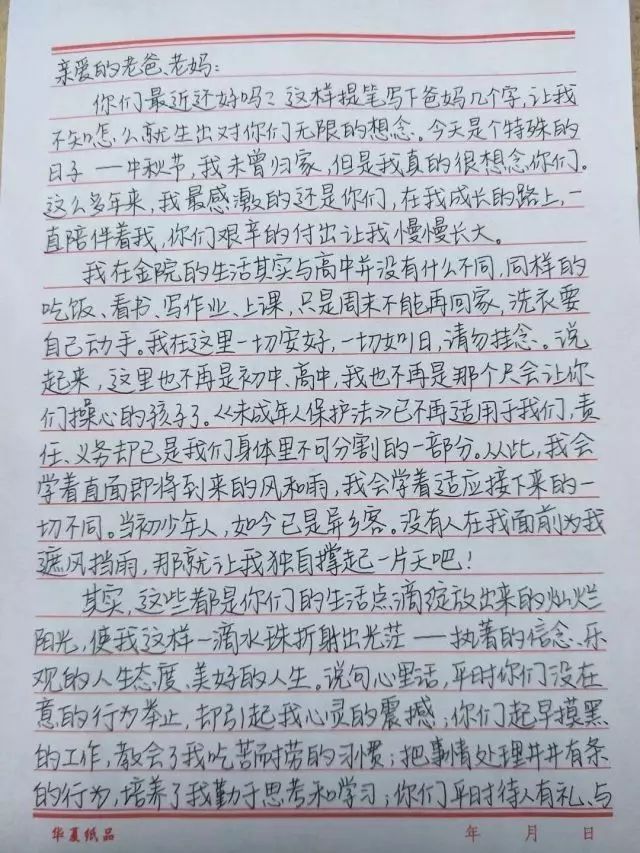 亲爱的老爸、老妈：
你们最近还好吗？这样提笔写下爸妈几个字，让我
不知怎么就生出对你们无限的想念。今天是个特殊的
日子——中秋节，我未曾归家，但是我真的很想念你们。
这么多年来，我最感激的还是你们，在我成长的路上，一
直陪伴着我，你们艰辛的付出让我慢慢长大。
我在金院的生活其实与高中并没有什么不同，同样的
吃饭、看书、写作业、上课，只是周末不能再回家，洗衣要
自己动手。我在这里一切安好，一切如旧，请勿挂念。说
起来，这里也不再是初中、高中，我也不再是那个只会让你
们操心的孩子了。《未成年人保护法》已不再适用于我们，责
任、义务却已是我们身体里不可分割的一部分。从此，我会
学着直面即将到来的风和雨，我会学着适应接下来的一
切不同。当初少年人，如今已是异乡客。没有人在我面前为我
遮风挡雨，那就让我独自撑起一片天吧！
其实，这些都是你们的生活点滴绽放出来的灿烂
阳光，使我这样一滴水珠折射出光茫——执着的信念、乐
观的人生态度、美好的人生。说句心里话，平时你们没在
意的行为举止，却引起我心灵的震撼；你们起早摸黑
的工作，教会了我吃苦耐劳的习惯；把事情处理井井有条
的行为，培养了我勤于思考和学习；你们平时待人有礼、与
华夏纸品 年 月 日